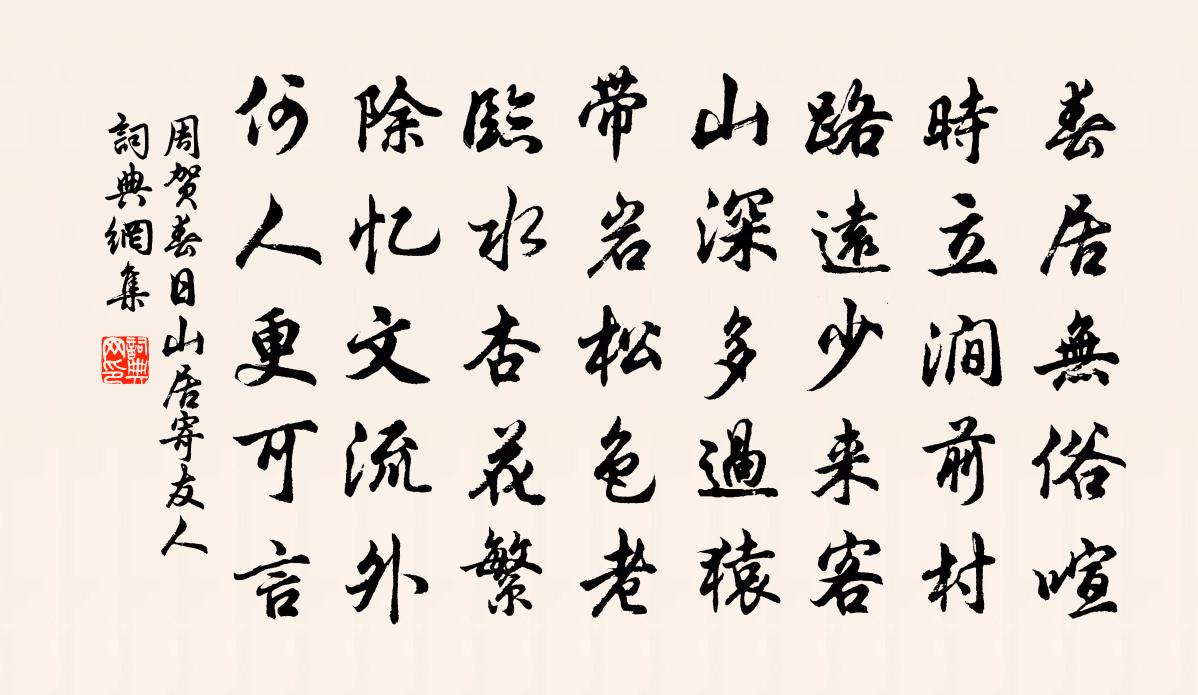 春居無俗喧
時立澗前村
路遠少来客
山深多過猿
带岩松色老
臨水杏花繁
除忆文流外
何人更可言
周贺春日山居寄友人
詞典網集
詞典网印